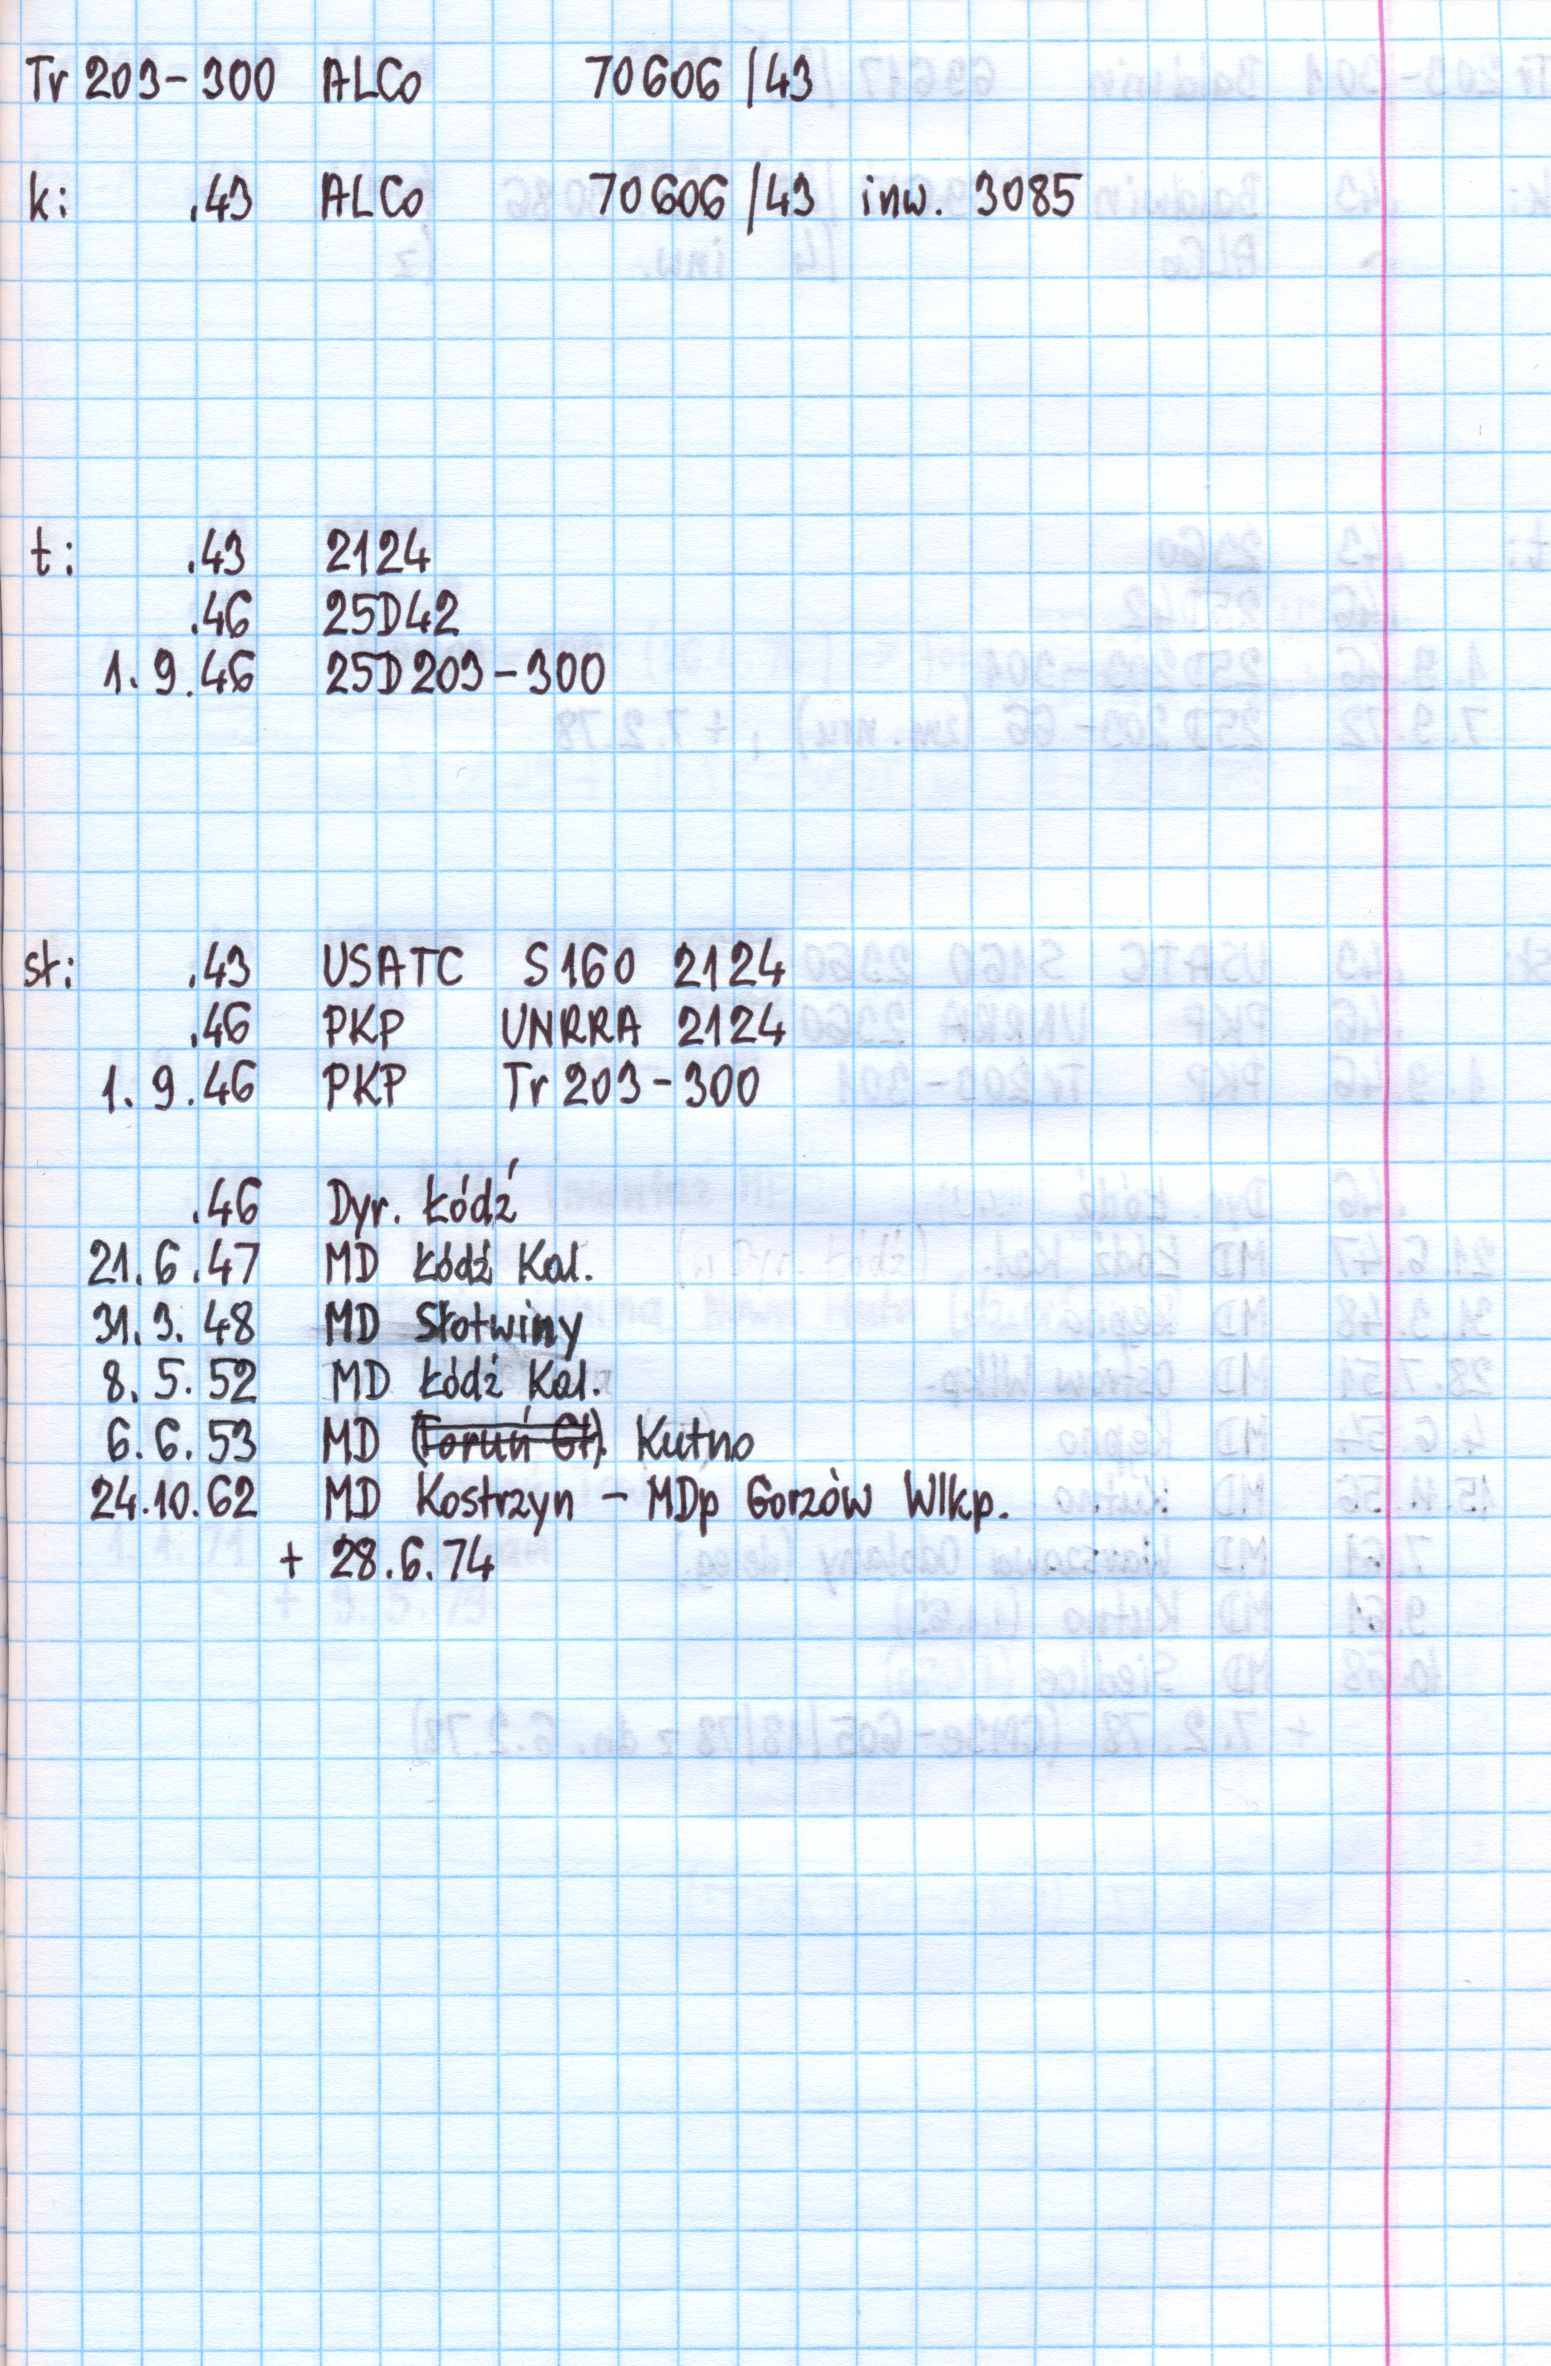 Tr 203-300 ALCo 70606/43
k: .43 ALCo 70606/43 inw. 3085
t: .43 2124
.46 25D42
1.9.46 25D203-300
st: .43 USATC S160 2124
.46 PKP UNRRA 2124
1.9.46 PKP Tr 203-300
.46 Dyr. Łódź
21.6.47 MD Łódź Kal.
31.3.48 MD Słotwiny
8.5.52 MD Łódź Kal.
6.6.53 MD (Toruń Gł). Kutno
24.10.62 MD Kostrzyn - MDp Gorzów Wlkp.
+ 28.6.74